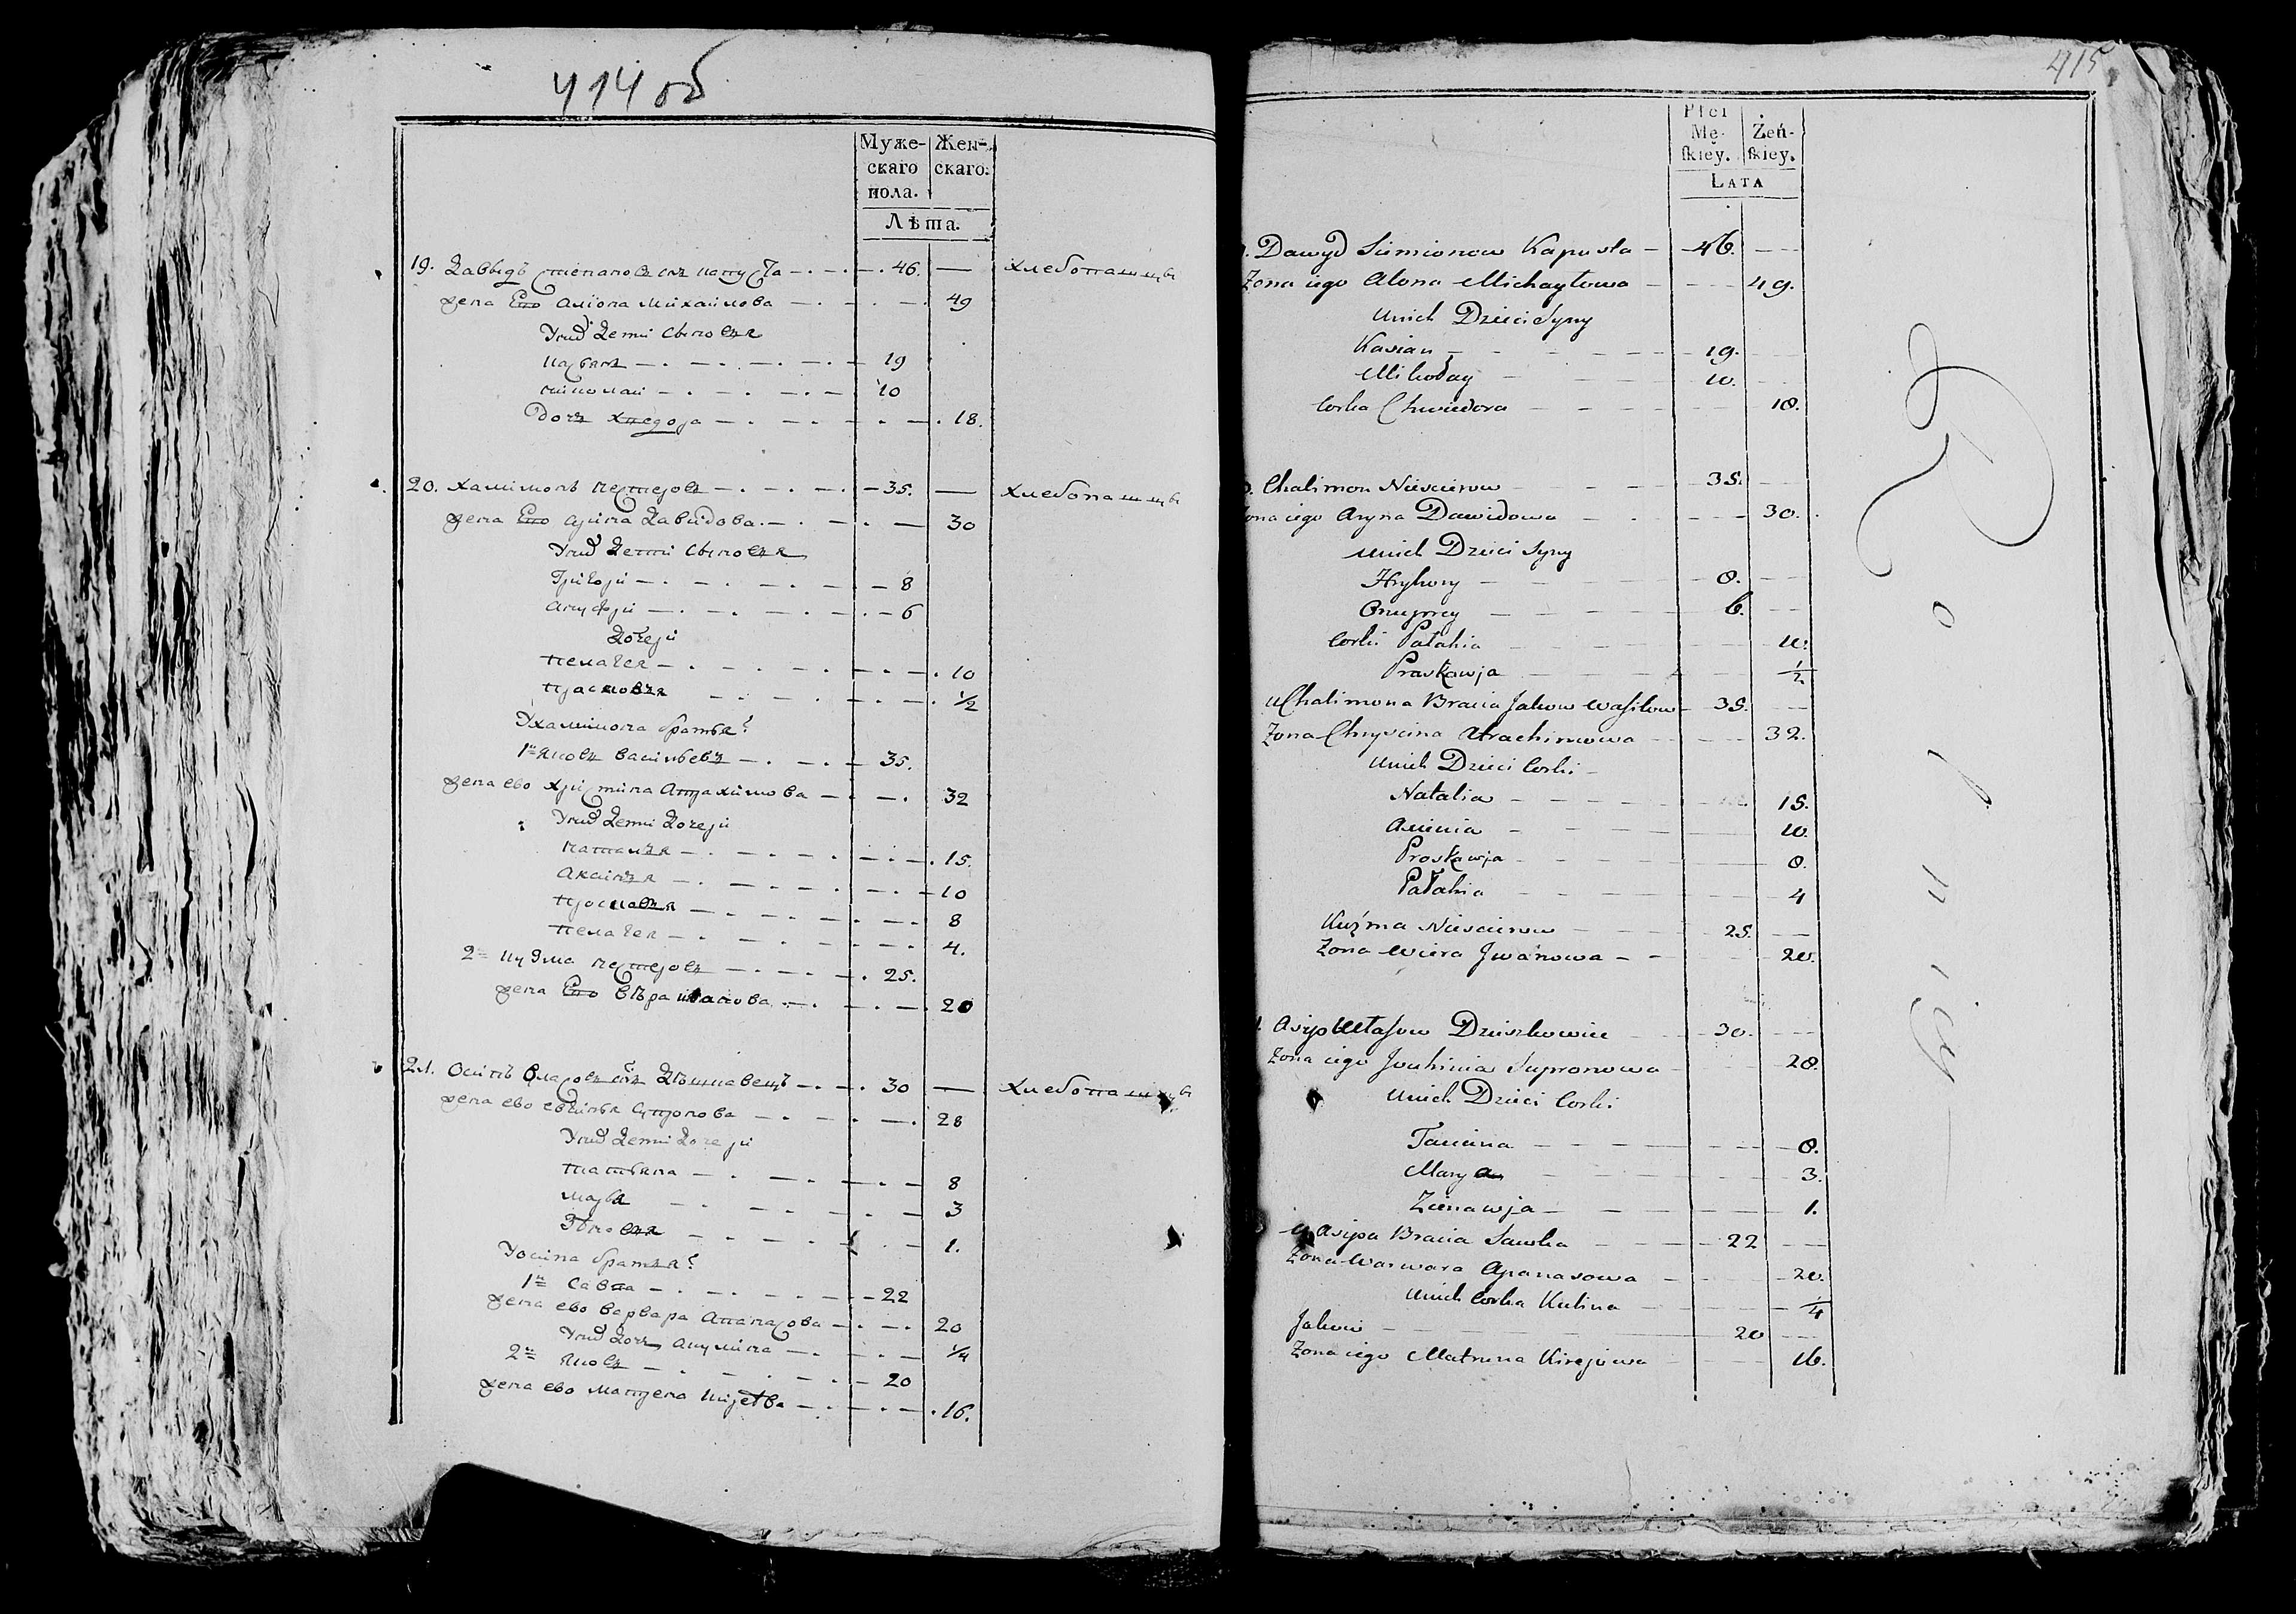 414 об
Муже- Жен-
скаго скаго.
пола.
Лѣта.
19. Давыдъ Степановъ снъ Капуста 46. — хлебопашцы
жена Его Алїона Михаилова 49
У них дети сыновья
Касянъ 19
Николаи 10
Дочь Хведора 18.
20. Халимонъ Нестеровъ 35. — хлебопашцы
жена Его Арина Давидова 30
У них дети сыновья
Григори 8
Ануфри 6
Дочери
Пелагея 10
Прасковья 1/2
У Халимона братья:
1й Яковъ Васильевъ 35.
жена ево Христина Атрахимова 32
У них дети Дочери
Наталья 15.
Аксинья 10
Просковья 8
Пелагея 4.
2й Кузма Нестеровъ 25.
жена Его Вѣра Иванова 20
21. Осипъ Власовъ снъ 30 — хлебопашцы
жена ево Евгинья Супронова 28
У них дети Дочери
Татьяна 8
Марья 3
Зѣновья 1.
У Осипа братья:
1й Савка 22
жена ево Варвара Апанасова 20
У них дочь Акулина 1/4
2й Яковъ 20
жена ево Матрена Кирѣева 16.
415
Płci
Mę- Żeń-
skiey. skiey.
LATA
Dawyd Simionow Kapusta 46.
Żona iego Alona Michayłowa 49.
U nich Dzieci Syny
Kasian 19.
Mikołay 10.
Corka Chwiedora 18.
Chalimon Niescierow 35.
Żona iego Aryna Dawidowa 30.
U nich Dzieci Syny
Hryhory 8.
Onufrey 6.
Corki Pałahia 10.
Praskowja 1/2
U Chalimona Bracia Jakow Wasilow 35.
Żona Chryscina Atrachimowa 32.
U nich Dzieci Corki
Natalia 15.
Axinia 10.
Proskowja 8.
Pałahia 4
Kuźma Niescierow 25.
Żona Wiera Jwanowa 20.
Asip Ułasow Dzieszkowicz 30.
Żona iego Jouhinia Supronowa 28.
U nich Dzieci Corki
Taciana 8.
Marya 3.
Zienowja 1.
U Asipa Bracia Sawka 22
Żona Warwara Apanasowa 20.
U nich Corka Kulina 1/4
Jakow 20
Żona iego Matruna Kirejowa 16.
Rolnicy